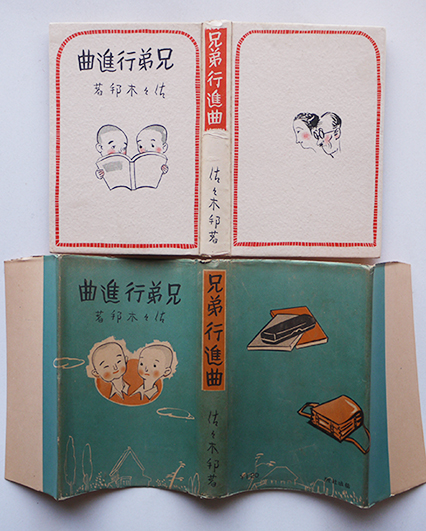 兄弟行進曲
佐々木邦著
兄弟行進曲
佐々木邦著
兄弟行進曲
佐々木邦著
兄弟行進曲
佐々木邦著